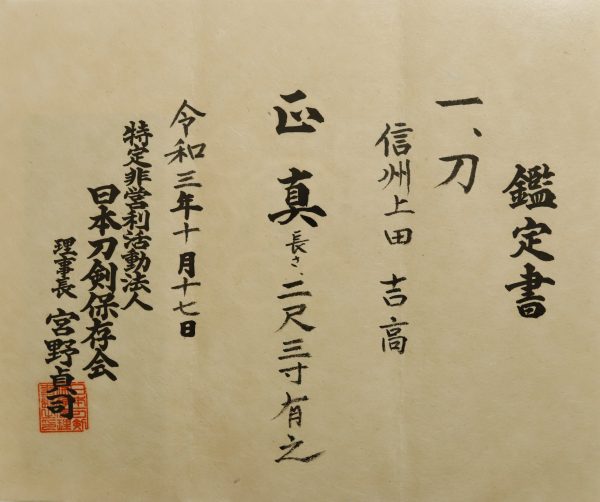 鑑定書
一、刀
信州上田 吉高
正真 長さ、二尺三寸有之
令和三年十月十七日
特定非営利活動法人
日本刀剣保存会
理事長 宮野貞司